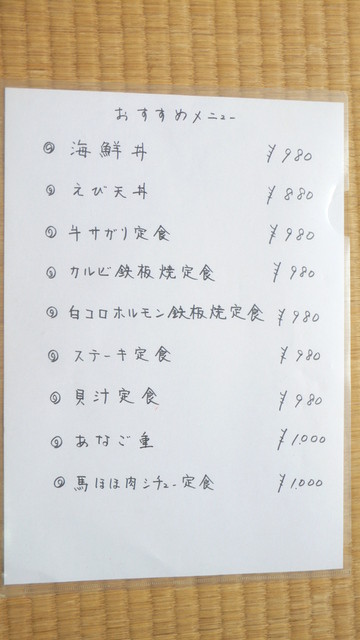 おすすめメニュー
◎ 海鮮丼 ¥980
◎ えび天丼 ¥880
◎ 牛サガリ定食 ¥980
◎ カルビ鉄板焼定食 ¥980
◎ 白コロホルモン鉄板焼定食 ¥980
◎ ステーキ定食 ¥980
◎ 貝汁定食 ¥980
◎ あなご重 ¥1.000
◎ 馬ほほ肉シチュー定食 ¥1.000